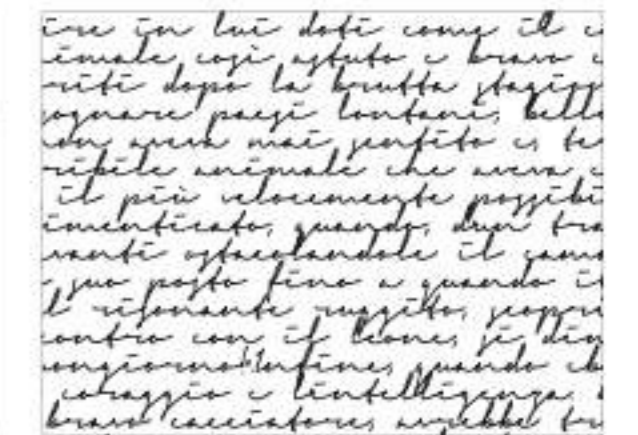 ire in lui doti come il c
imale così astuto e bravo c
riti dopo la brutta stagion
ognare paesi lontani, belle
on aveva mai sentito e, te
ribile animale che aveva c
il più velocemente possibi
imenticato, quando, dun tra
vanti ostacolandole il camm
suo posto fino a quando it
l risonante ruggito, scopri
contro con il leone, si din
ongiorno! Infine, quando ch
coraggio e lintelligenza,
bravo cacciatore, avrebbe tr